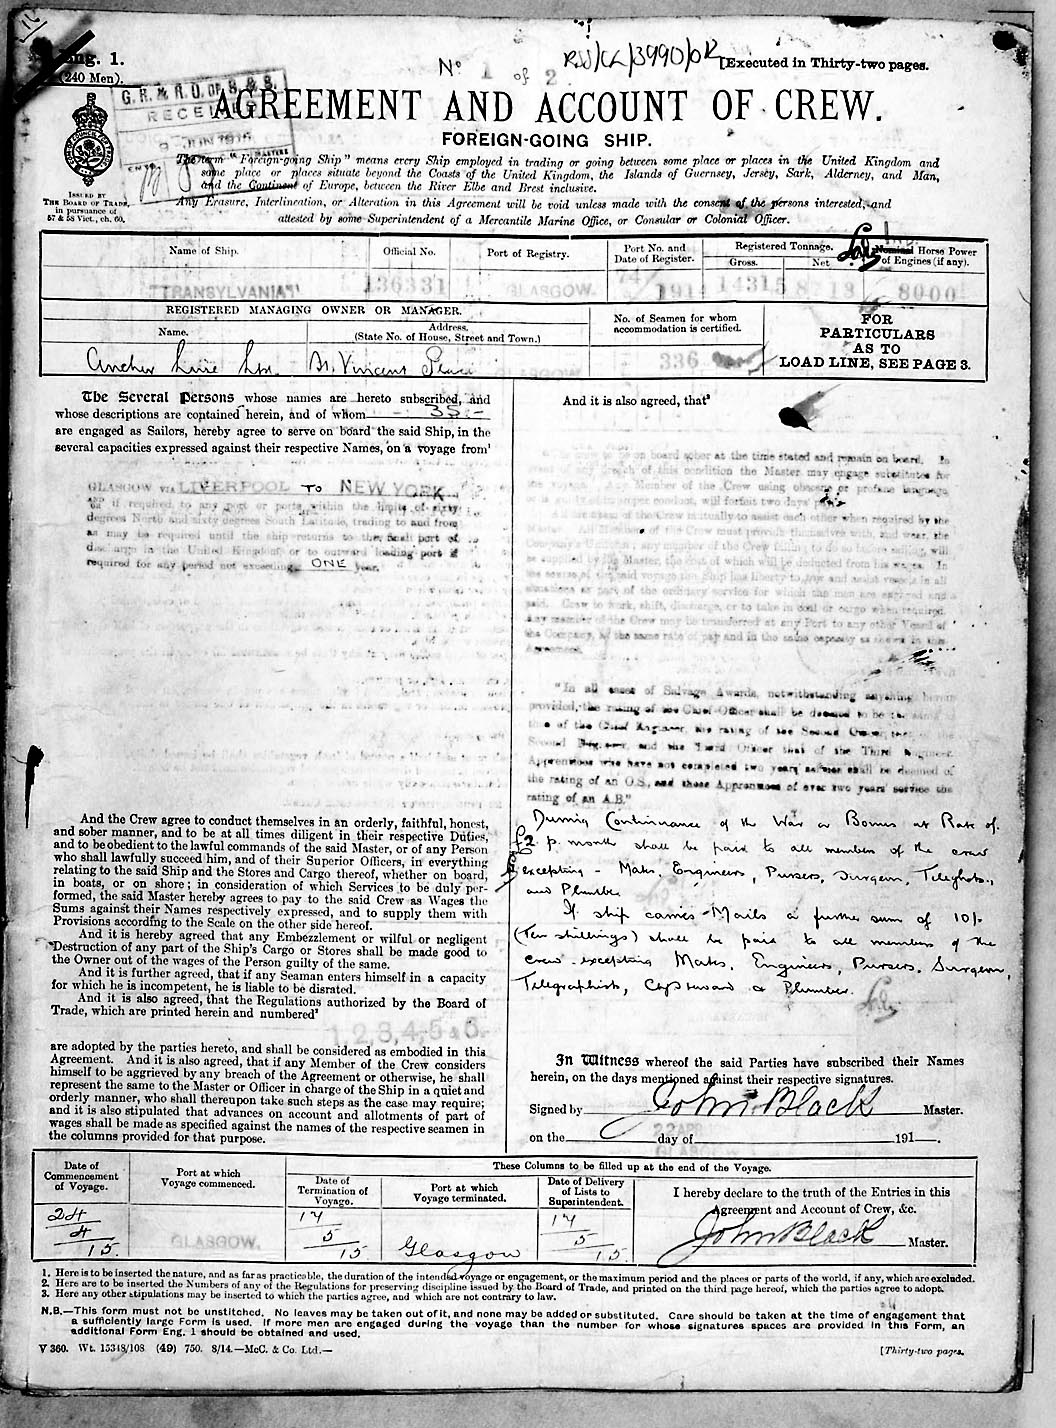 Eng. 1.
(240 Men).
No 1 of 2
RSS/CL/3990/
[Executed in Thirty-two pages.
G. R. & R. O. OF S. & S.
RECEIVED
JUN 1915
AGREEMENT AND ACCOUNT OF CREW.
FOREIGN-GOING SHIP.
The term "Foreign-going Ship" means every Ship employed in trading or going between some place or places in the United Kingdom and
some place or places situate beyond the Coasts of the United Kingdom, the Islands of Guernsey, Jersey, Sark, Alderney, and Man,
and the Continent of Europe, between the River Elbe and Brest inclusive.
Any Erasure, Interlineation, or Alteration in this Agreement will be void unless made with the consent of the persons interested, and
attested by some Superintendent of a Mercantile Marine Office, or Consular or Colonial Officer.
ISSUED BY
THE BOARD OF TRADE,
in pursuance of
57 & 58 Vict., ch. 60.
Name of Ship. Official No. Port of Registry. Port No. and Date of Register. Registered Tonnage. Gross. Net Nominal Horse Power of Engines (if any).
"TRANSYLVANIA" 136331 GLASGOW. 74/1914 14315 8713 Ind. 8000
REGISTERED MANAGING OWNER OR MANAGER.
Name. Address. (State No. of House, Street and Town.)
No. of Seamen for whom accommodation is certified.
FOR
PARTICULARS
AS TO
LOAD LINE, SEE PAGE 3.
Anchor Line Ltd. St. Vincent Place GLASGOW 336
The Several Persons whose names are hereto subscribed, and
whose descriptions are contained herein, and of whom -: 35 :-
are engaged as Sailors, hereby agree to serve on board the said Ship, in the
several capacities expressed against their respective Names, on a voyage from¹
GLASGOW via LIVERPOOL TO NEW YORK
AND/OR if required to any port or ports within the limits of sixty
degrees North and sixty degrees South Latitude, trading to and from
as may be required until the ship returns to the final port of
discharge in the United Kingdom, or to outward loading port if
required for any period not exceeding ONE year.
And the Crew agree to conduct themselves in an orderly, faithful, honest,
and sober manner, and to be at all times diligent in their respective Duties,
and to be obedient to the lawful commands of the said Master, or of any Person
who shall lawfully succeed him, and of their Superior Officers, in everything
relating to the said Ship and the Stores and Cargo thereof, whether on board,
in boats, or on shore; in consideration of which Services to be duly per-
formed, the said Master hereby agrees to pay to the said Crew as Wages the
Sums against their Names respectively expressed, and to supply them with
Provisions according to the Scale on the other side hereof.
And it is hereby agreed that any Embezzlement or wilful or negligent
Destruction of any part of the Ship's Cargo or Stores shall be made good to
the Owner out of the wages of the Person guilty of the same.
And it is further agreed, that if any Seaman enters himself in a capacity
for which he is incompetent, he is liable to be disrated.
And it is also agreed, that the Regulations authorized by the Board of
Trade, which are printed herein and numbered²
1,2,3,4,5 & 6.
are adopted by the parties hereto, and shall be considered as embodied in this
Agreement. And it is also agreed, that if any Member of the Crew considers
himself to be aggrieved by any breach of the Agreement or otherwise, he shall
represent the same to the Master or Officer in charge of the Ship in a quiet and
orderly manner, who shall thereupon take such steps as the case may require;
and it is also stipulated that advances on account and allotments of part of
wages shall be made as specified against the names of the respective seamen in
the columns provided for that purpose.
And it is also agreed, that³
board sober at the time stated and remain on board. In
of any breach of this condition the Master may engage substitutes
Any Member of the Crew using obscene or profane language
conduct, will forfeit two days' pay
of the Crew mutually to assist each other when required by the
Master. All Members of the Crew must provide themselves with, and wear, the
Company's Uniform; any member of the Crew failing to do so before sailing, will
be supplied by the Master, the cost of which will be deducted from his wages. In
the course of the said voyage the ship has liberty to tow and assist vessels in all
situations as part of the ordinary service for which the men are engaged and
paid. Crew to work, shift, discharge, or to take in coal or cargo when required.
Any member of the Crew may be transferred at any Port to any other Vessel of
the Company, at the same rate of pay and in the same capacity as in this
Agreement.
"In all cases of Salvage Awards, notwithstanding anything herein
provided, the rating of the Chief Officer shall be deemed to be the same as
that of the Chief Engineer, the rating of the Second Officer that of the
Second Engineer, and the Third Officer that of the Third Engineer.
Apprentices who have not completed two years service shall be deemed of
the rating of an O.S. and those Apprentices of over two years' service the
rating of an A.B."
During Continuance of the War a Bonus at Rate of
£2 p. month shall be paid to all members of the crew
excepting - Mates, Engineers, Pursers, Surgeon, Teleghsts.,
and Plumber
If ship carries Mails a further sum of 10/-
(ten shillings) shall be paid to all members of the
crew - excepting Mates, Engineers, Pursers, Surgeon,
Telegraphists, Chf Steward & Plumber.
In Witness whereof the said Parties have subscribed their Names
herein, on the days mentioned against their respective signatures.
Signed by John Black Master.
22 APR
GLASGOW
on the day of 191 .
Date of Commencement of Voyage. Port at which Voyage commenced. These Columns to be filled up at the end of the Voyage.
Date of Termination of Voyage. Port at which Voyage terminated. Date of Delivery of Lists to Superintendent.
I hereby declare to the truth of the Entries in this
Agreement and Account of Crew, &c.
24/4/15. GLASGOW. 17/5/15. Glasgow 17/5/15. John Black Master.
1. Here is to be inserted the nature, and as far as practicable, the duration of the intended voyage or engagement, or the maximum period and the places or parts of the world, if any, which are excluded.
2. Here are to be inserted the Numbers of any of the Regulations for preserving discipline issued by the Board of Trade, and printed on the third page hereof, which the parties agree to adopt.
3. Here any other stipulations may be inserted to which the parties agree, and which are not contrary to law.
N.B.—This form must not be unstitched. No leaves may be taken out of it, and none may be added or substituted. Care should be taken at the time of engagement that
a sufficiently large Form is used. If more men are engaged during the voyage than the number for whose signatures spaces are provided in this Form, an
additional Form Eng. 1 should be obtained and used.
V 360. Wt. 15348/108 (49) 750. 8/14.—McC. & Co. Ltd.—
[Thirty-two pages.